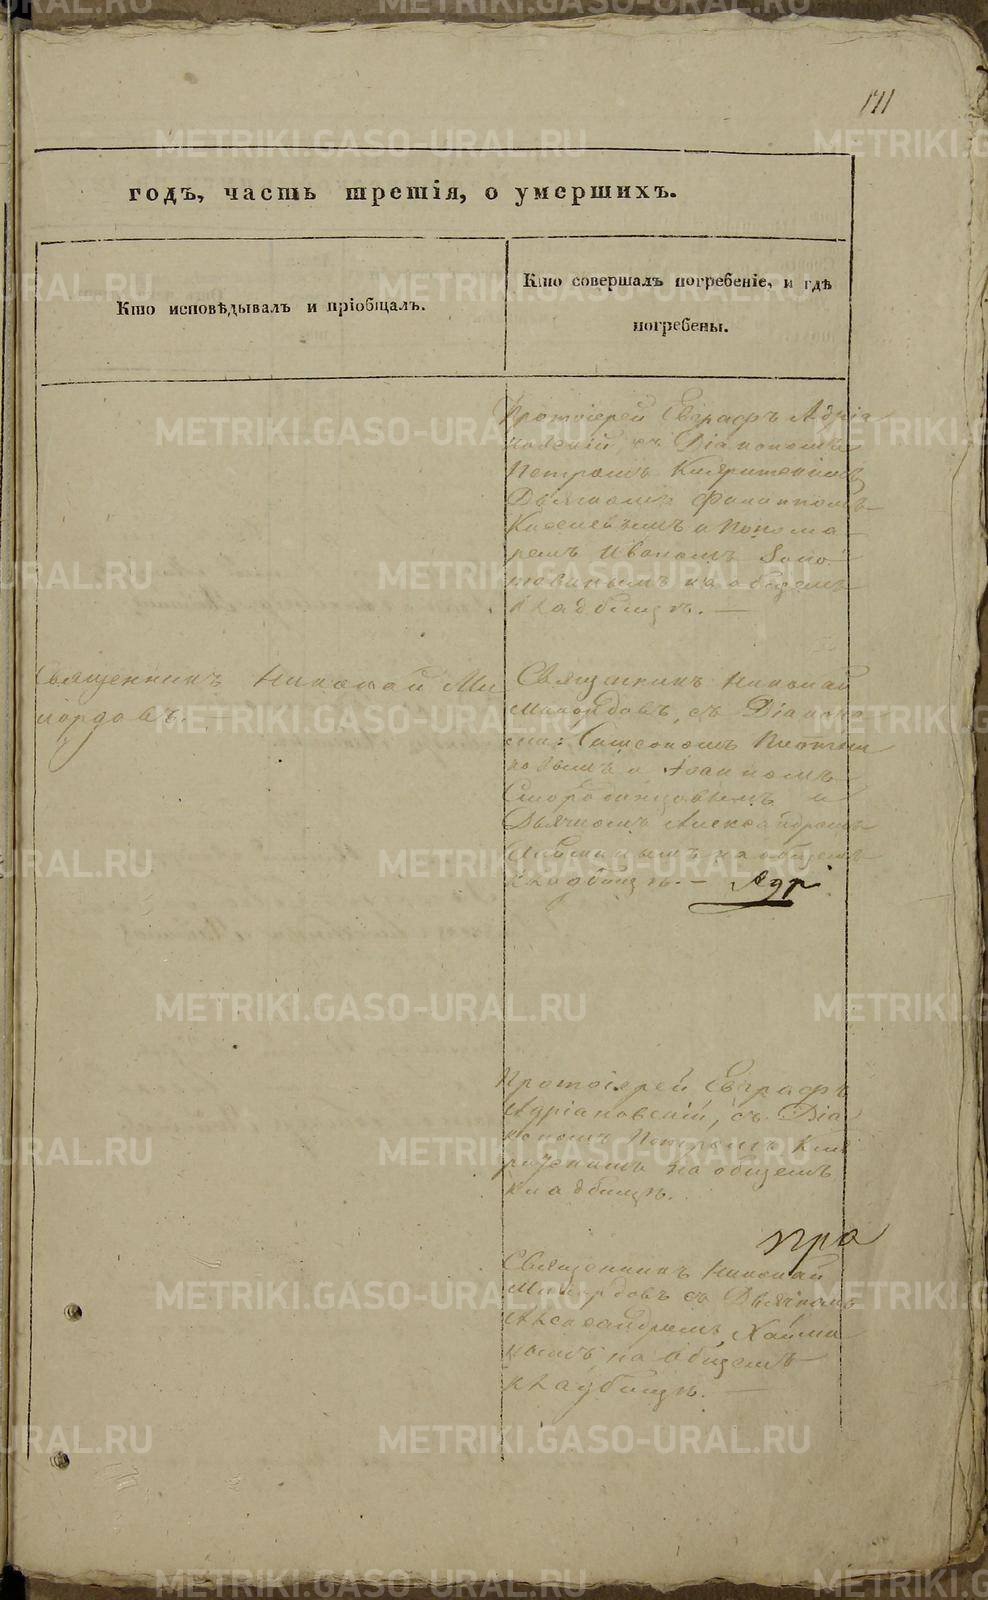 171
годъ, часть третія, о умершихъ.
Кто исповѣдывалъ и пріобщалъ.
Кто совершалъ погребеніе, и гдѣ
погребены.
Протоіерей Евграфъ Адріа
новскій, съ Діакономъ
Петромъ
Дьячкомъ Филиппомъ
и Понома
ремъ Иваномъ Золо
товинымъ на общемъ
кладбищѣ. —
Священникъ Николай Ми
лордовъ. —
Священникъ Николай
Милордовъ, съ Діакона
ми: Симеономъ Плотни
ковымъ и Іоанномъ
Смородинцовымъ и
Дьячкомъ Александромъ
на общемъ
кладбищѣ. — Адрі
Протоіерей Евграфъ
Адріановскій, съ Діа
кономъ Петромъ
на общемъ
кладбищѣ.
про
Священникъ Николай
Милордовъ съ Дьячкомъ
Александромъ
на общемъ
кладбищѣ. —
METRIKI.GASO-URAL.RU